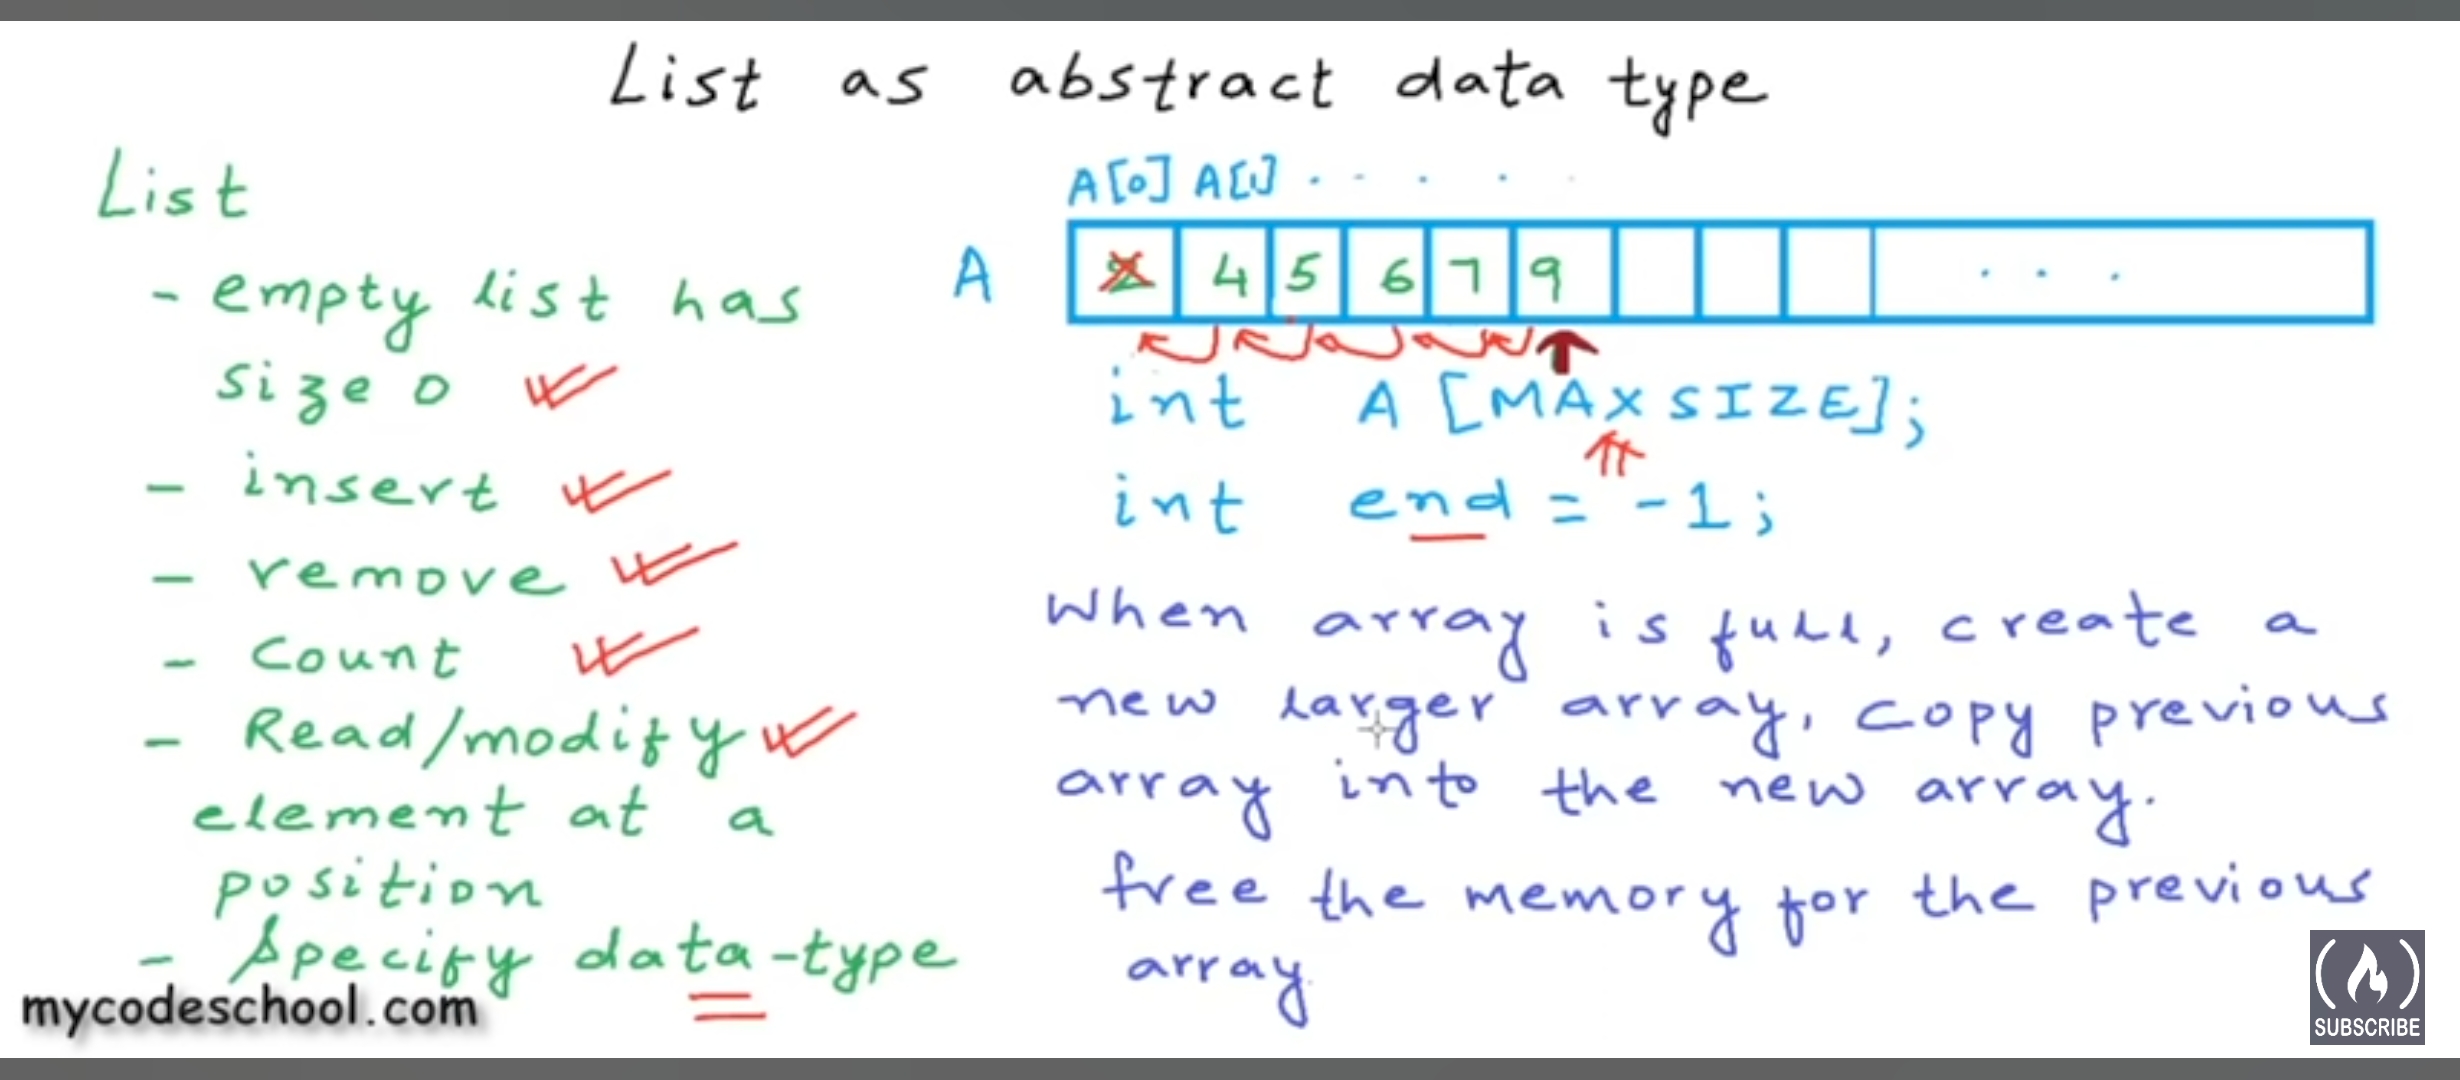 List as abstract data type
List
- empty list has
size 0
- insert
- remove
- Count
- Read/modify
element at a
position
- Specify data-type
mycodeschool.com
A[0] A[1] . . . . .
A 2 4 5 6 7 9 . . .
int A [MAXSIZE];
int end = -1;
When array is full, create a
new larger array, copy previous
array into the new array.
free the memory for the previous
array.
SUBSCRIBE